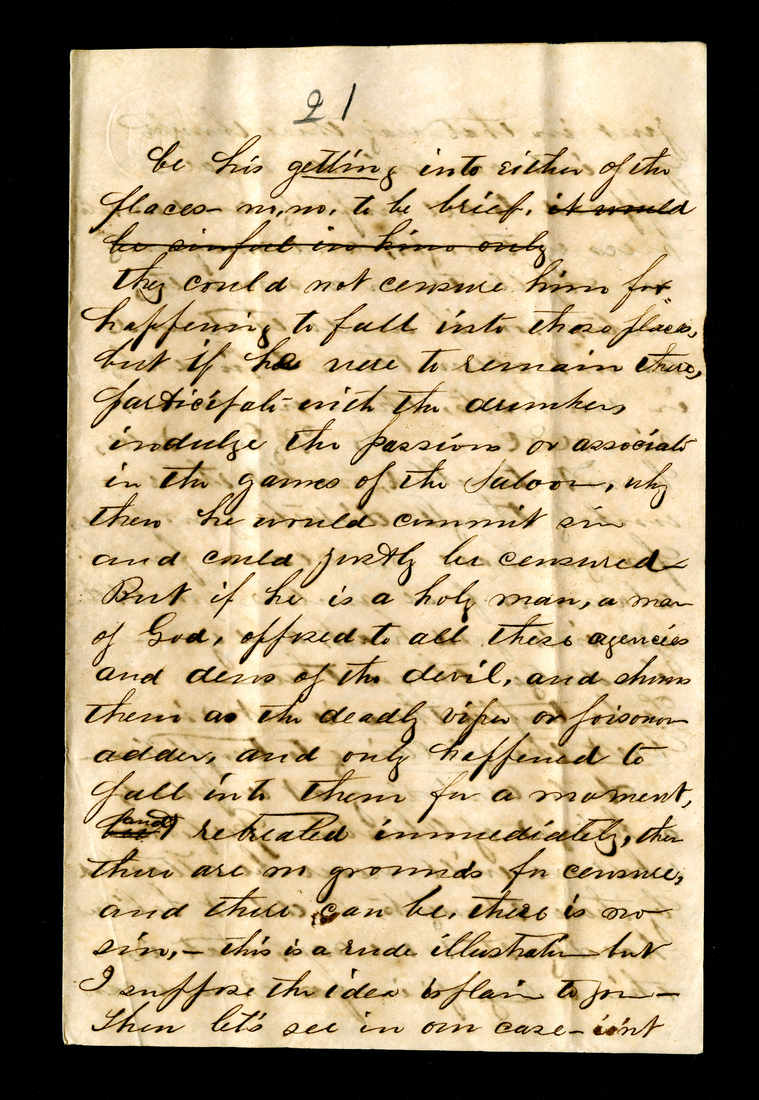 21
be his getting into either of the
places— no, no, to be brief, it would
be sinful in him only
they could not censure him for
happening to fall into those places,
but if he were to remain there,
participate with the drinkers
indulge the passions or associate
in the games of the saloon, why
then he would commit sin
and could justly be censured—
But if he is a holy man, a man
of God, opposed to all these agencies
and dens of the devil, and shuns
them as the deadly viper or poisonous
adder, and only happened to
fall into them for a moment,
and retreated immediately, then
there are no grounds for censure,
and there can be, there is no
sin,— this is a rude illustration but
I suppose the idea is plain to you—
Then let's see in our case— isn't